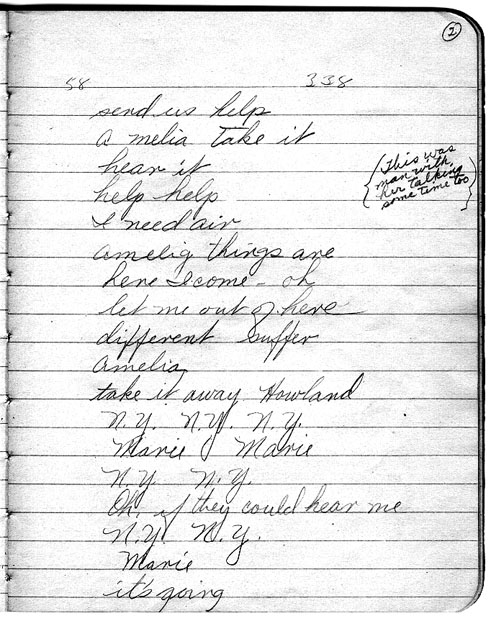 2
58 338
send us help
a melia take it
hear it
(This was
man with
her talking
some time too)
help help
I need air
amelia things are
here I come - oh
let me out of here
different suffer
amelia
take it away Howland
N.Y. N.Y. N.Y.
Marie Marie
N.Y. N.Y.
Oh, if they could hear me
N.Y. N.Y.
Marie
it's going